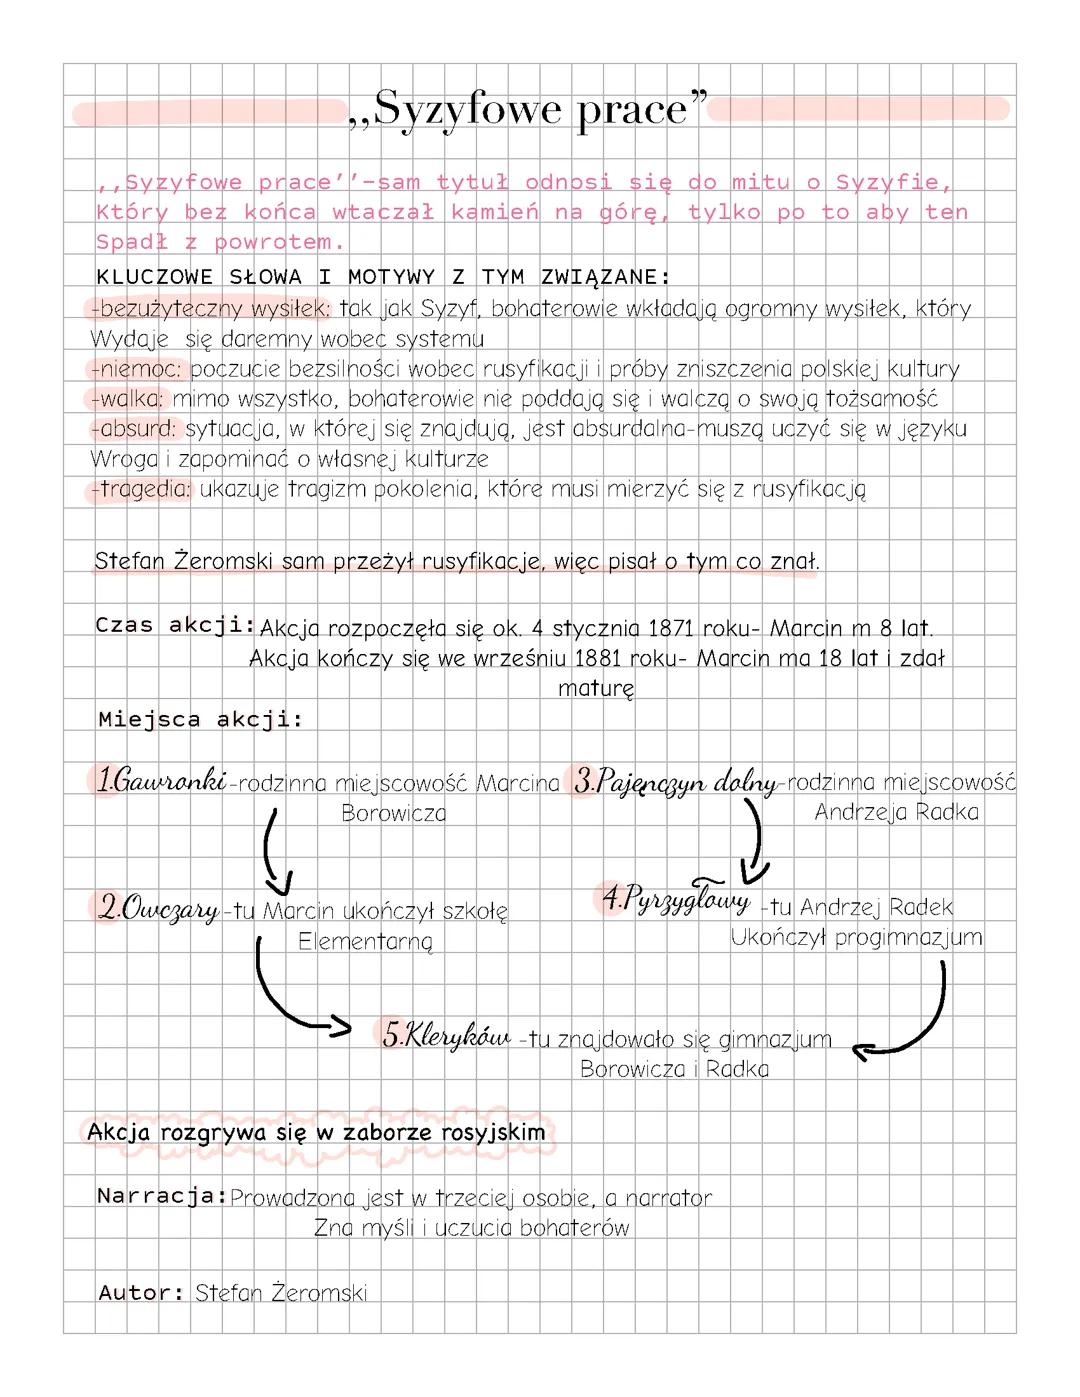 ,,Syzyfowe prace”
,,Syzyfowe prace’’-sam tytuł odnosi się do mitu o Syzyfie,
Który bez końca wtaczał kamień na górę, tylko po to aby ten
Spadł z powrotem.
KLUCZOWE SŁOWA I MOTYWY Z TYM ZWIĄZANE:
-bezużyteczny wysiłek: tak jak Syzyf, bohaterowie wkładają ogromny wysiłek, który
Wydaje się daremny wobec systemu
-niemoc: poczucie bezsilności wobec rusyfikacji i próby zniszczenia polskiej kultury
-walka: mimo wszystko, bohaterowie nie poddają się i walczą o swoją tożsamość
-absurd: sytuacja, w której się znajdują, jest absurdalna-muszą uczyć się w języku
Wroga i zapominać o własnej kulturze
-tragedia: ukazuje tragizm pokolenia, które musi mierzyć się z rusyfikacją
Stefan Żeromski sam przeżył rusyfikacje, więc pisał o tym co znał.
Czas akcji: Akcja rozpoczęła się ok. 4 stycznia 1871 roku- Marcin m 8 lat.
Akcja kończy się we wrześniu 1881 roku- Marcin ma 18 lat i zdał
maturę
Miejsca akcji:
1.Gawronki-rodzinna miejscowość Marcina
Borowicza
3.Pajęnczyn dolny-rodzinna miejscowość
Andrzeja Radka
2.Owczary-tu Marcin ukończył szkołę
Elementarną
4.Pyrzygłowy -tu Andrzej Radek
Ukończył progimnazjum
5.Kleryków -tu znajdowało się gimnazjum
Borowicza i Radka
Akcja rozgrywa się w zaborze rosyjskim
Narracja: Prowadzona jest w trzeciej osobie, a narrator
Zna myśli i uczucia bohaterów
Autor: Stefan Żeromski